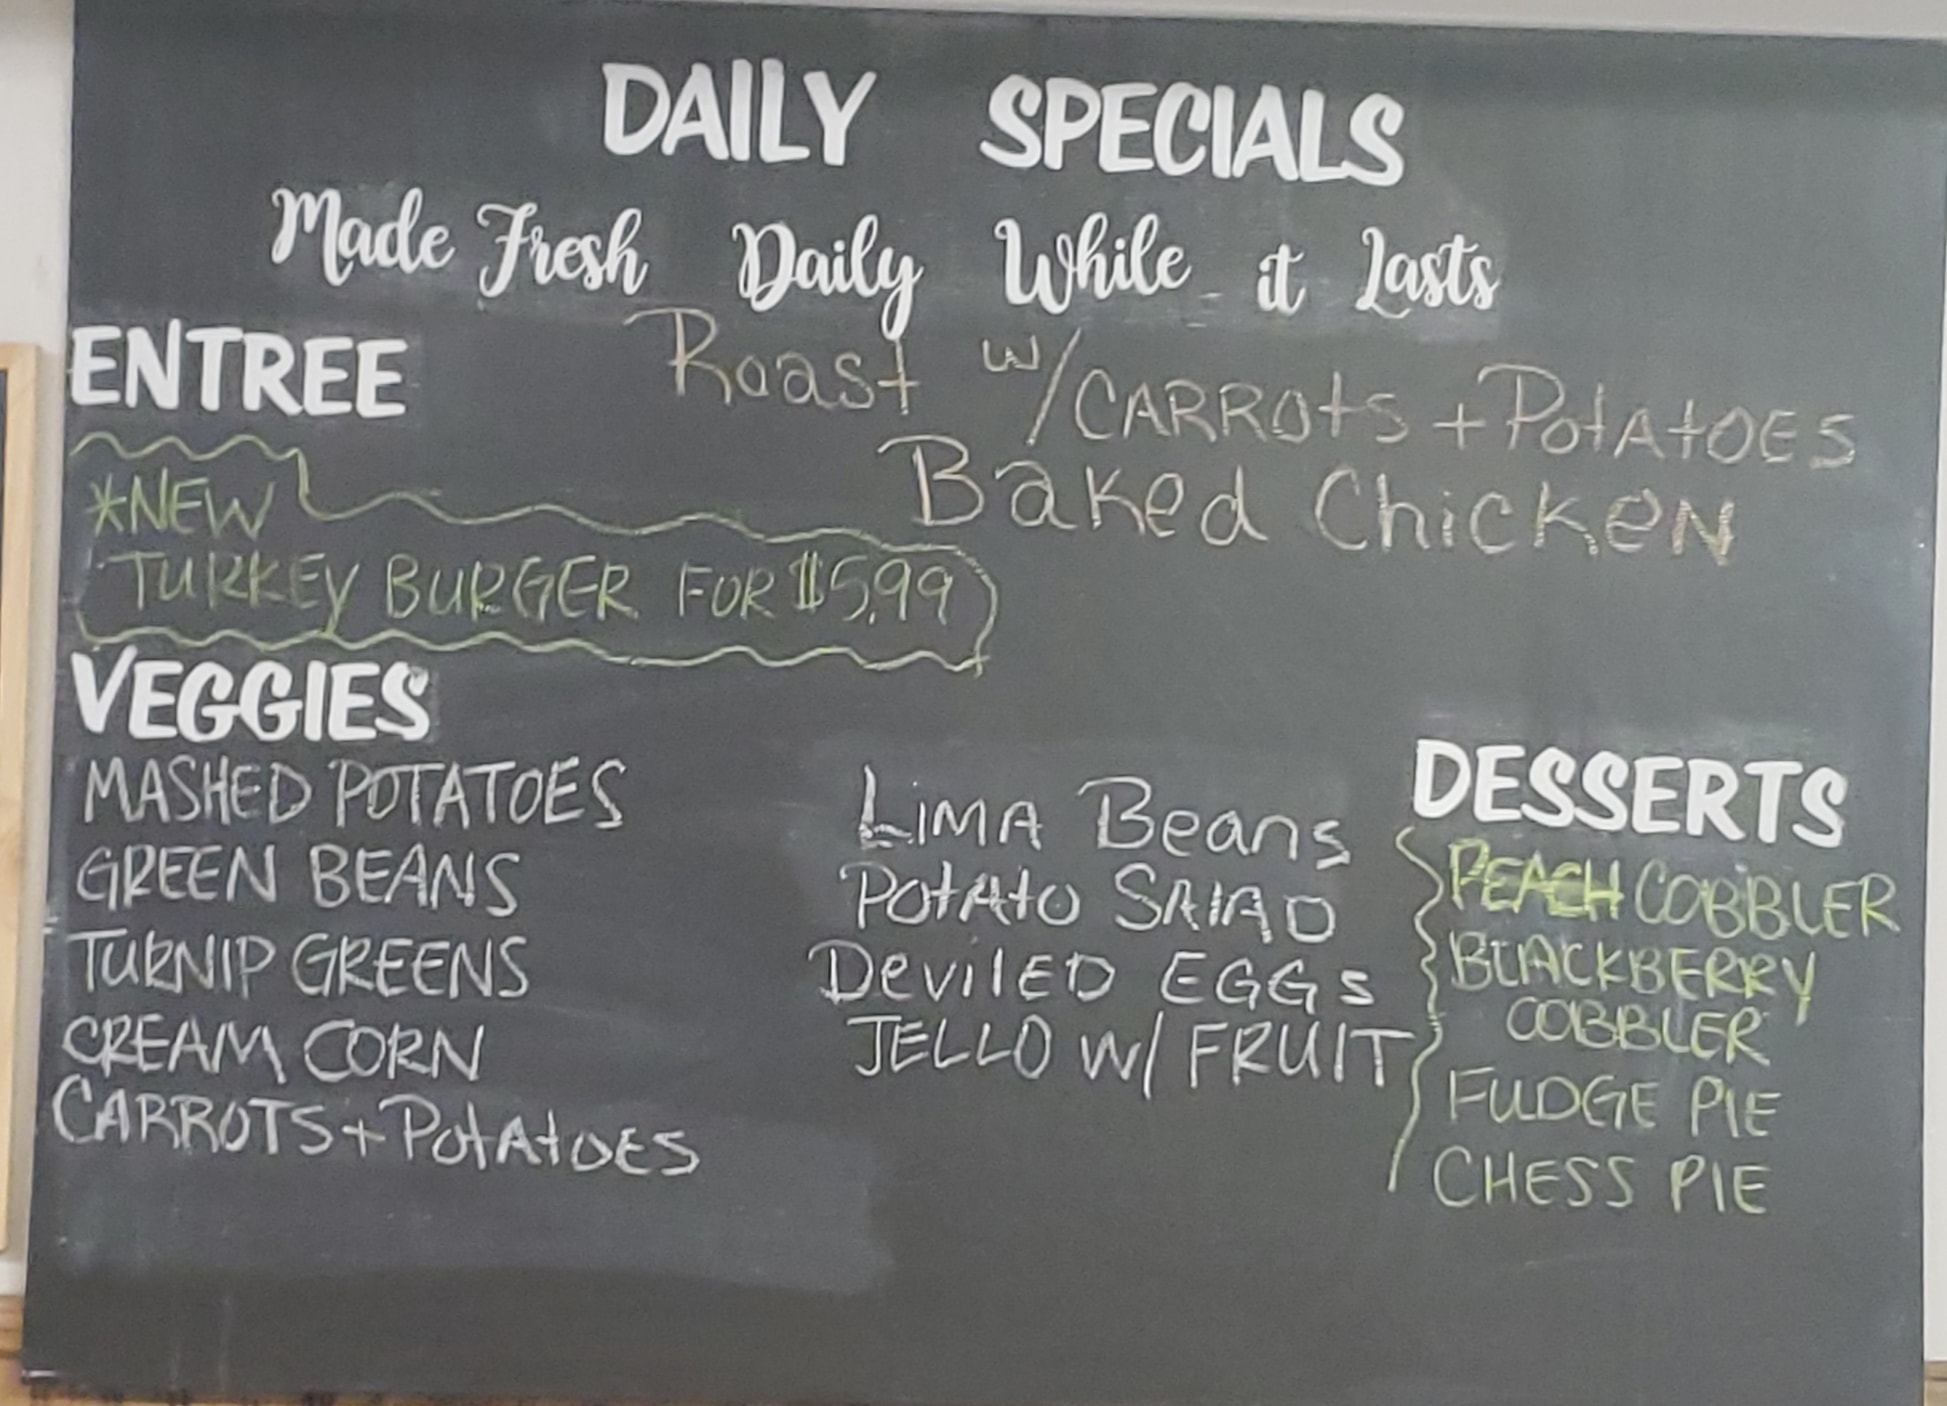 DAILY SPECIALS
Made Fresh Daily While it Lasts
ENTREE
Roast w/CARROtS + PotAtOES
Baked ChickeN
*NEW
TURKEY BURGER FOR $5.99
VEGGIES
MASHED POTATOES
GREEN BEANS
TURNIP GREENS
CREAM CORN
CARROTS + PotAtOES
LIMA Beans
PotAto SAlAD
DevilED EGGs
JELLO W/ FRUIT
DESSERTS
PEACH COBBLER
BLACKBERRY
COBBLER
FUDGE PIE
CHESS PIE